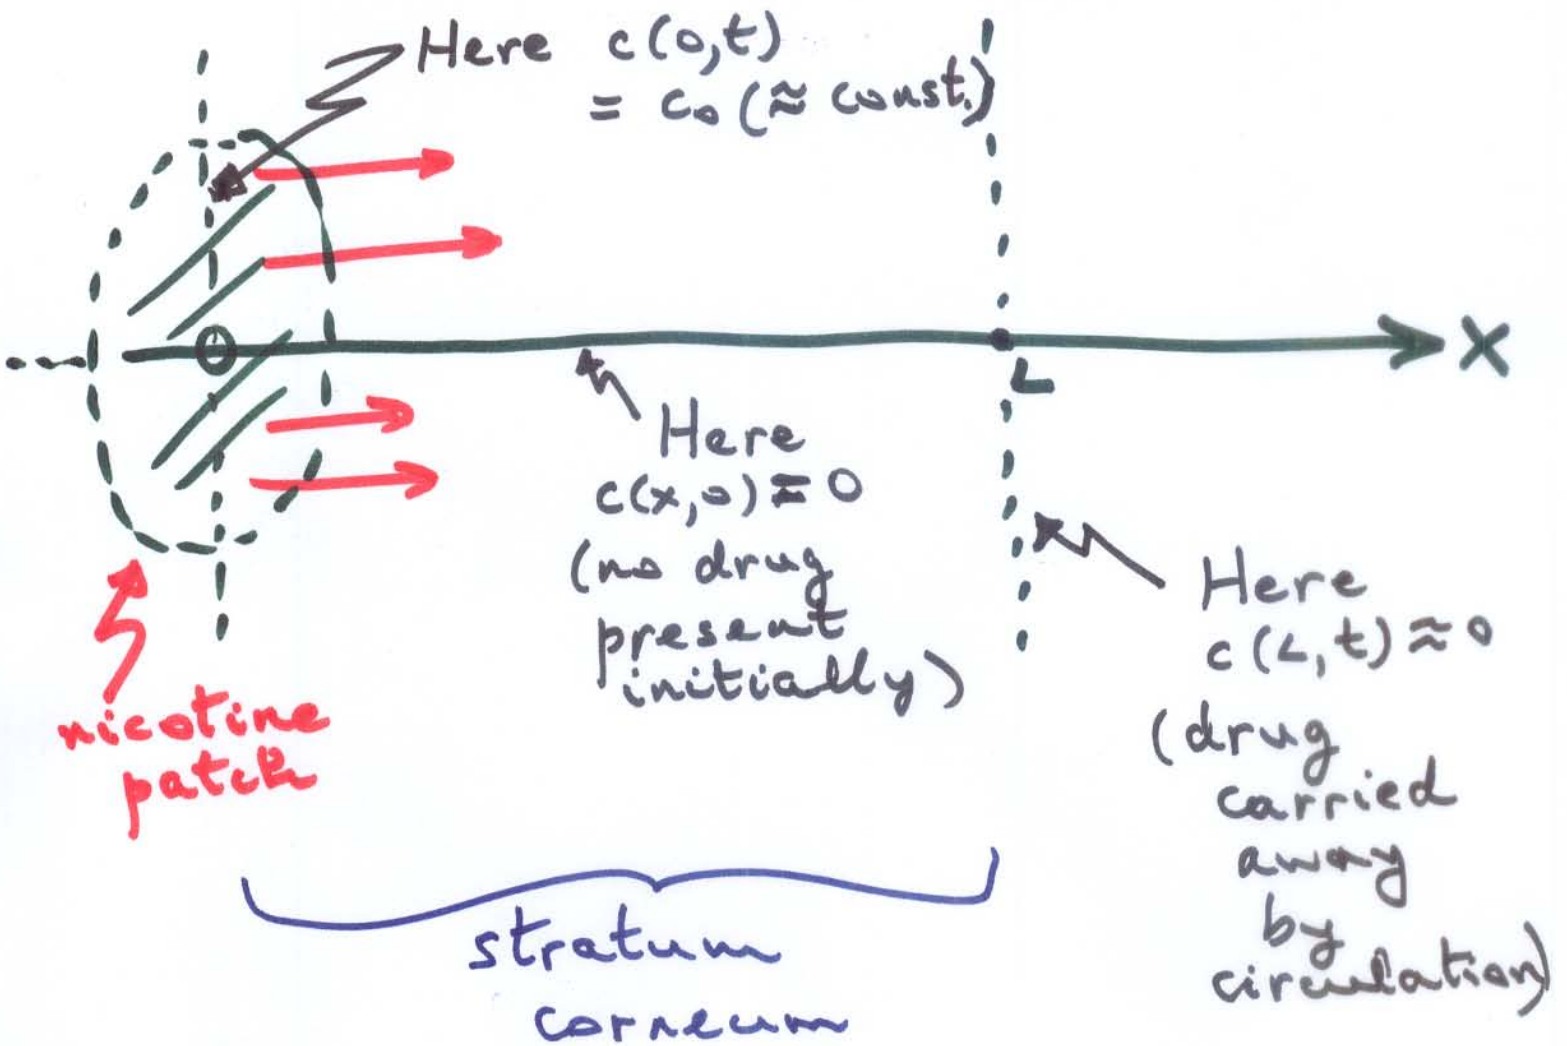 Here c(0,t)
= c₀ (≈ const.)
O
X
L
Here
c(x,0) = 0
(no drug
present
initially)
Here
c(L,t) ≈ 0
(drug
carried
away
by
circulation)
nicotine
patch
stratum
corneum